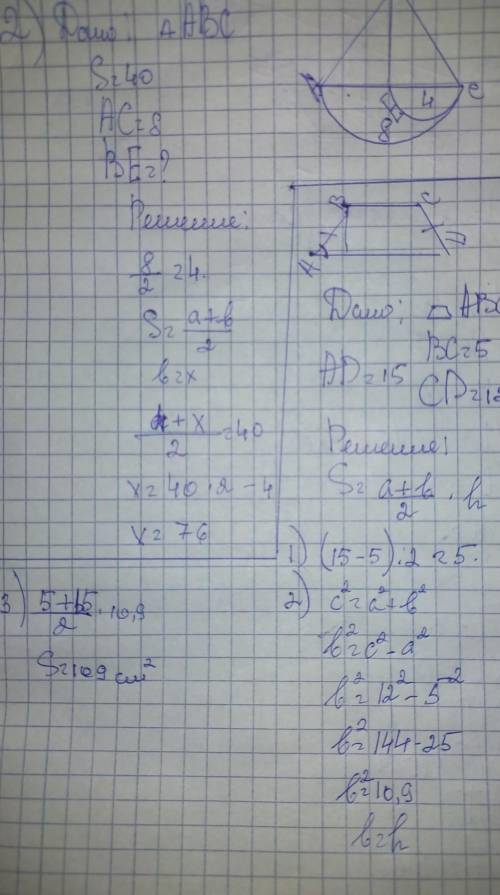 2) Дано: △ABC
S=40
AC=8
BE=?
Решение:
8/2 =4.
S= a+b/2
b=x
4+x/2 =40
x=40·2-4
x=76
C
4
8
B C
A D
Дано: ABC
BC=5
AD=15
CD=12
Решение:
S= a+b/2 · h
1) (15-5):2=5.
2) c²=a²+b²
b²=c²-a²
b²=12²-5²
b²=144-25
b²=10,9
b=h
3) 5+15/2 ·10,9
S=109 см²